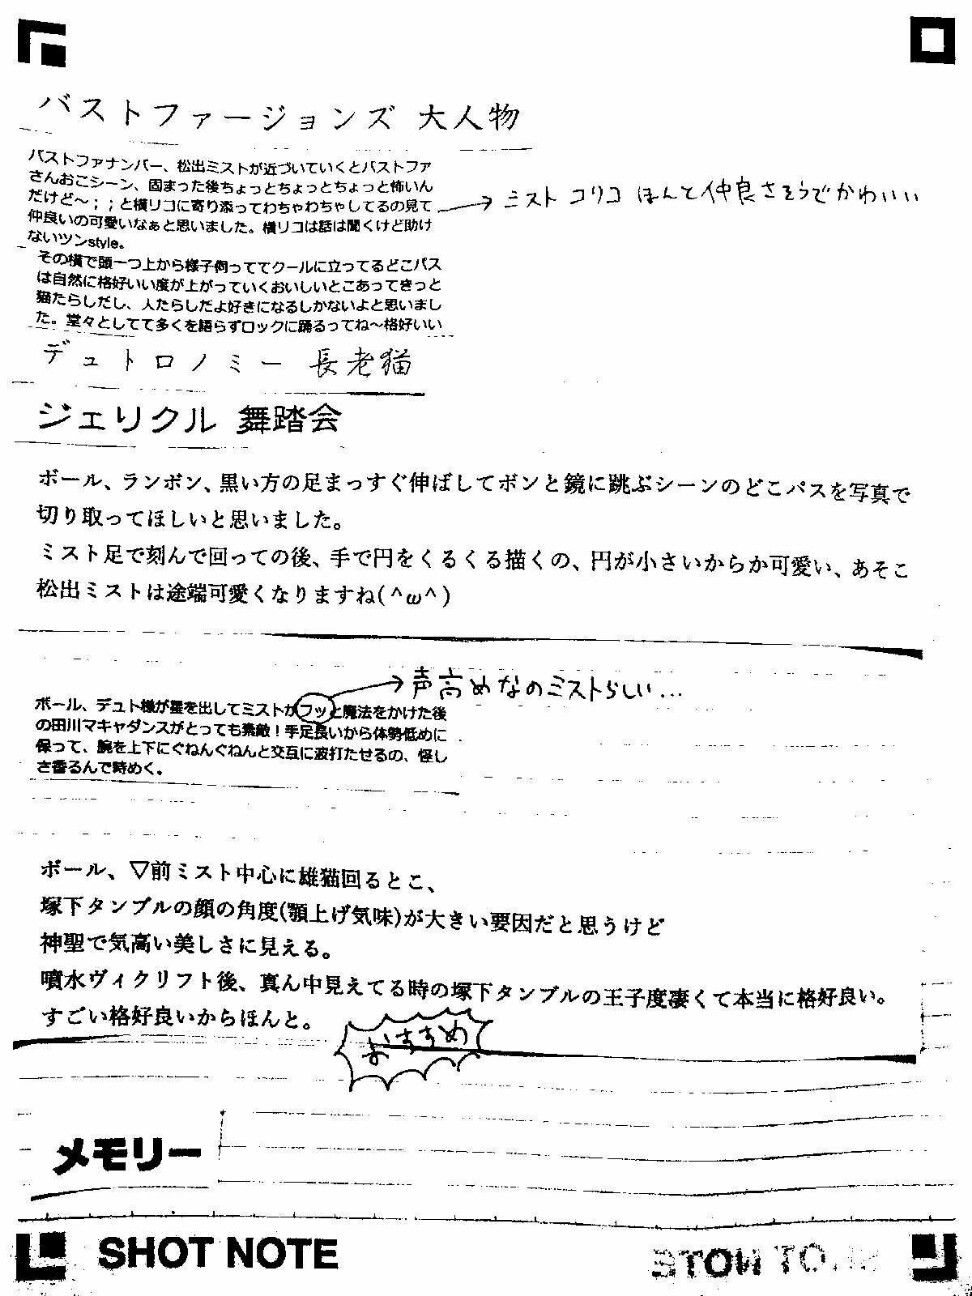 バストファージョンズ 大人物
バストファナンバー、松出ミストが近づいていくとバストファ
さんおこシーン、固まった後ちょっとちょっとちょっと怖いん
だけど〜；；と横リコに寄り添ってわちゃわちゃしてるの見て
仲良いの可愛いなぁと思いました。横リコは話は聞くけど助け
ないツンstyle。
→ミスト コリコ ほんと仲良さそうでかわいい
その横で頭一つ上から様子伺っててクールに立ってるどこパス
は自然に格好いい度が上がっていくおいしいとこあってきっと
猫たらしだし、人たらしだよ好きになるしかないよと思いまし
た。堂々としてて多くを語らずロックに踊るってね〜格好いい
デュトロノミー 長老猫
ジェリクル 舞踏会
ボール、ランボン、黒い方の足まっすぐ伸ばしてボンと鏡に跳ぶシーンのどこパスを写真で
切り取ってほしいと思いました。
ミスト足で刻んで回っての後、手で円をくるくる描くの、円が小さいからか可愛い、あそこ
松出ミストは途端可愛くなりますね(^ω^)
→声高めなのミストらしい...
ボール、デュト様が星を出してミストがフッと魔法をかけた後
の田川マキャダンスがとっても素敵！手足長いから体勢低めに
保って、腕を上下にぐねんぐねんと交互に波打たせるの、怪し
さ香るんで時めく。
ボール、▽前ミスト中心に雄猫回るとこ、
塚下タンブルの顔の角度(顎上げ気味)が大きい要因だと思うけど
神聖で気高い美しさに見える。
噴水ヴィクリフト後、真ん中見えてる時の塚下タンブルの王子度凄くて本当に格好良い。
すごい格好良いからほんと。
おすすめ
メモリー
SHOT NOTE